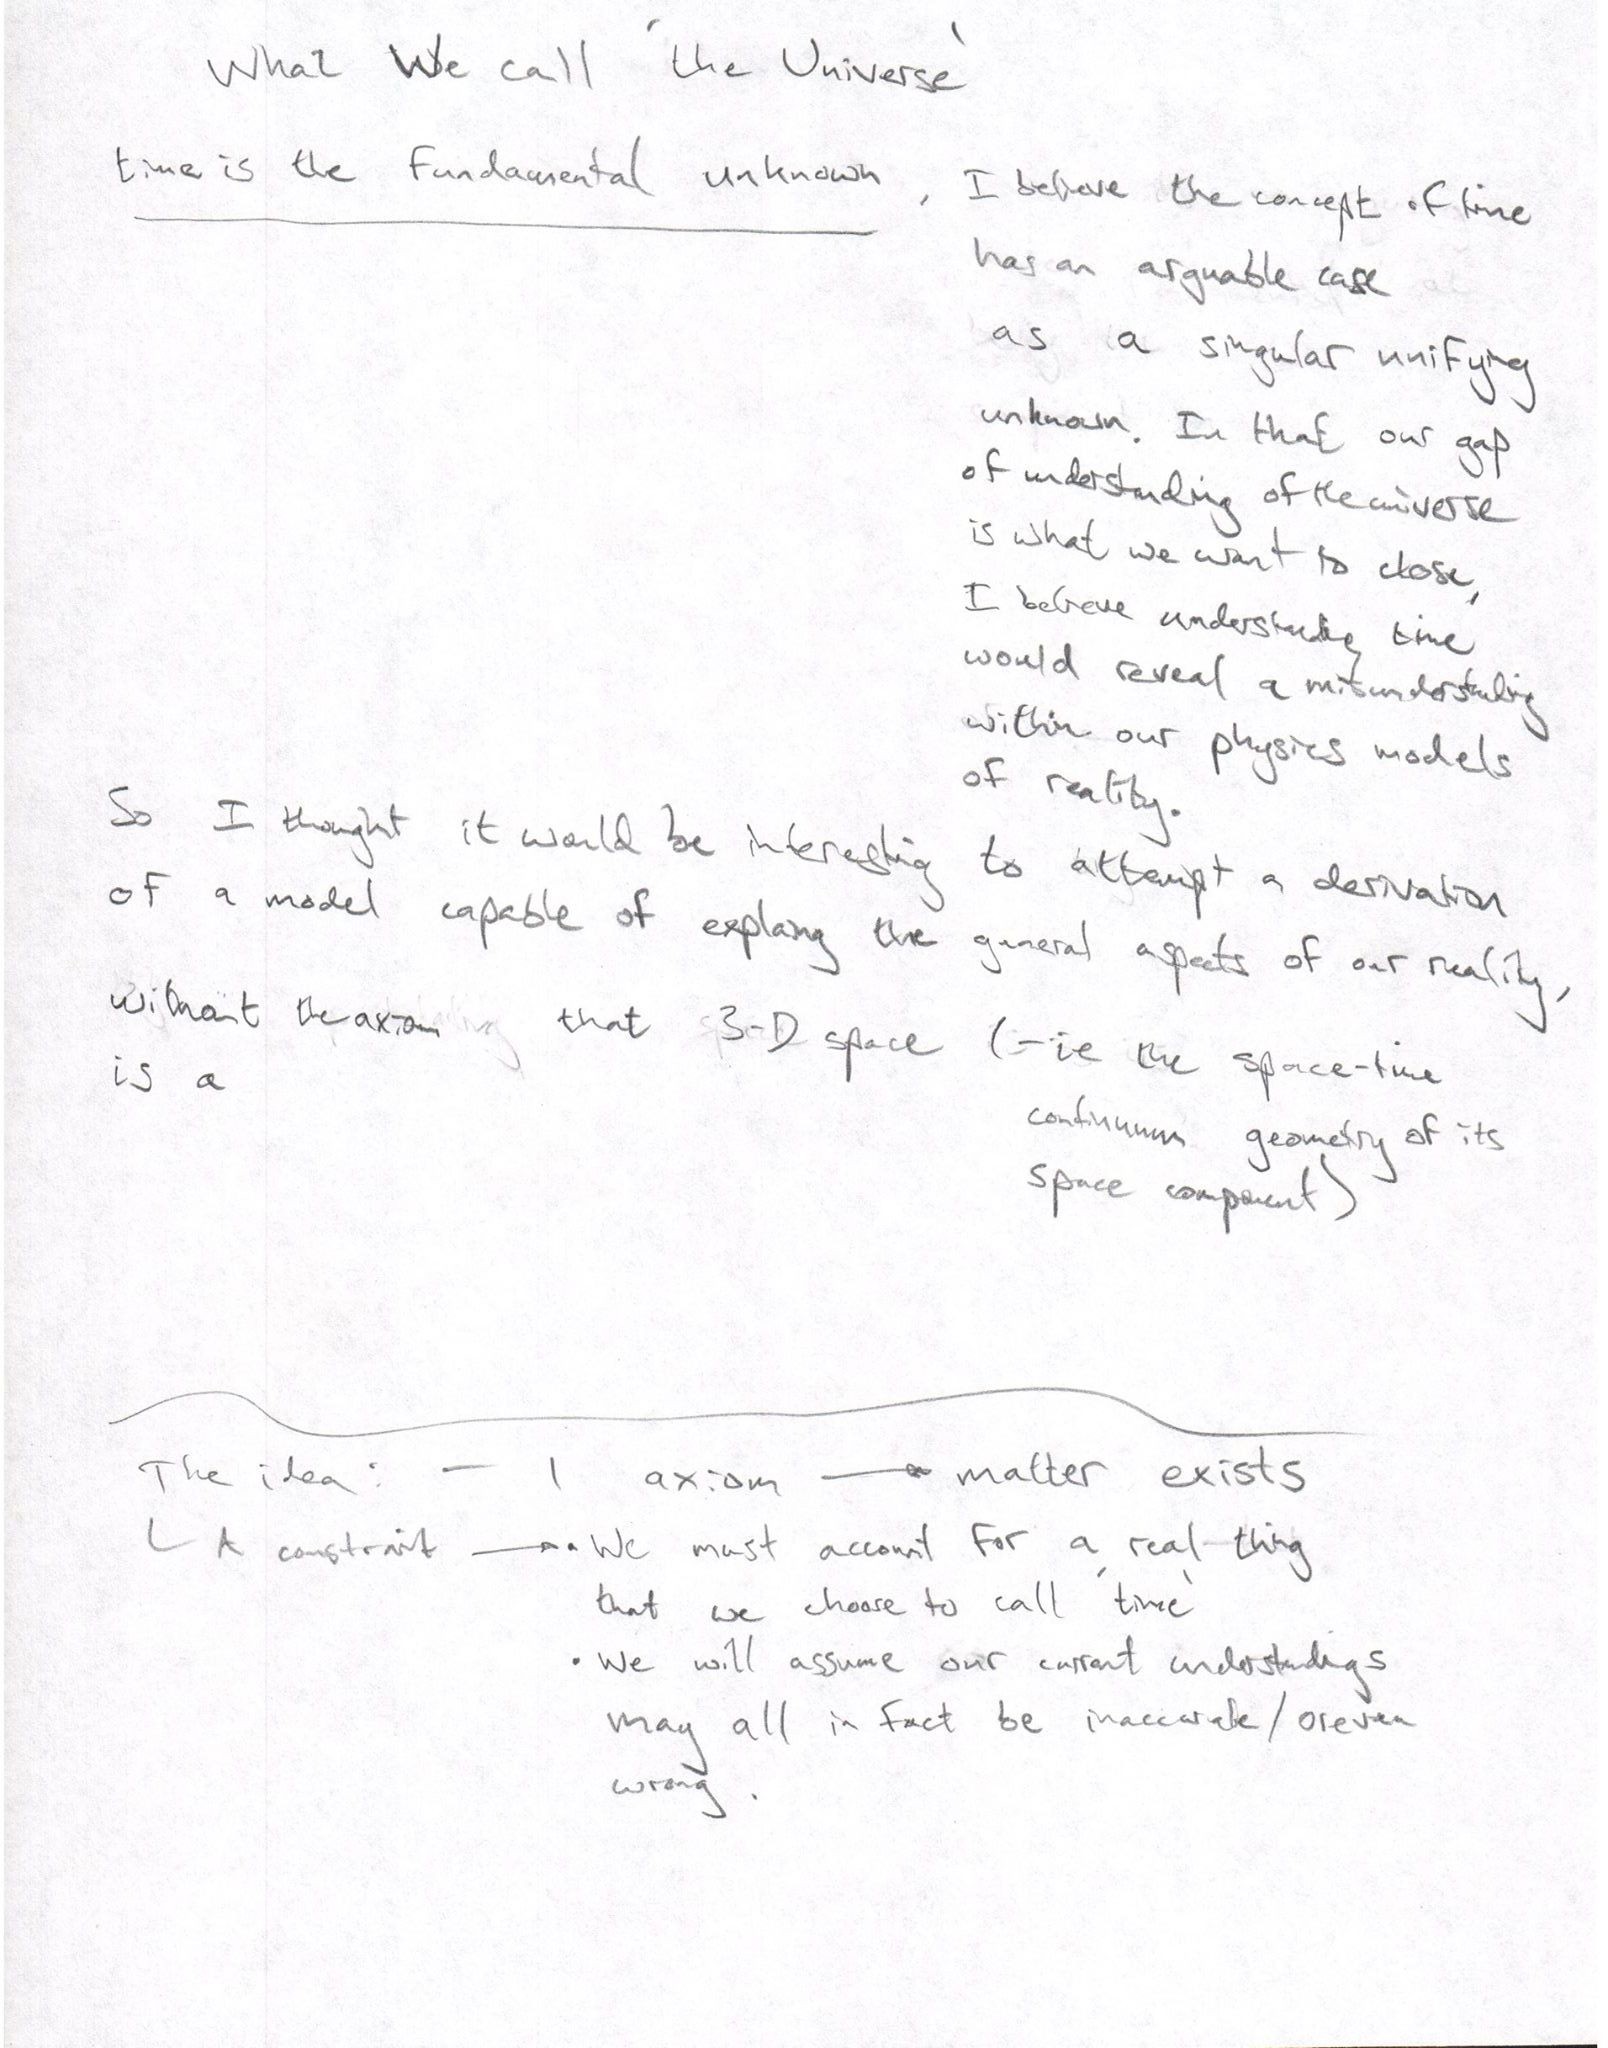 What We call 'the Universe'
time is the fundamental unknown, I believe the concept of time
has an arguable case
as a singular unifying
unknown. In that our gap
of understanding of the universe
is what we want to close,
I believe understanding time
would reveal a misunderstanding
within our physics models
of reality.
So I thought it would be interesting to attempt a derivation
of a model capable of explaing the general aspects of our reality,
without the axiom that 3-D space (-ie the space-time
is a
continuum geometry of its
space component)
The idea: - 1 axiom → matter exists
A constraint → • We must account for a real thing
that we choose to call 'time'
• We will assume our current understandings
may all in fact be inaccurate/or even
wrong.